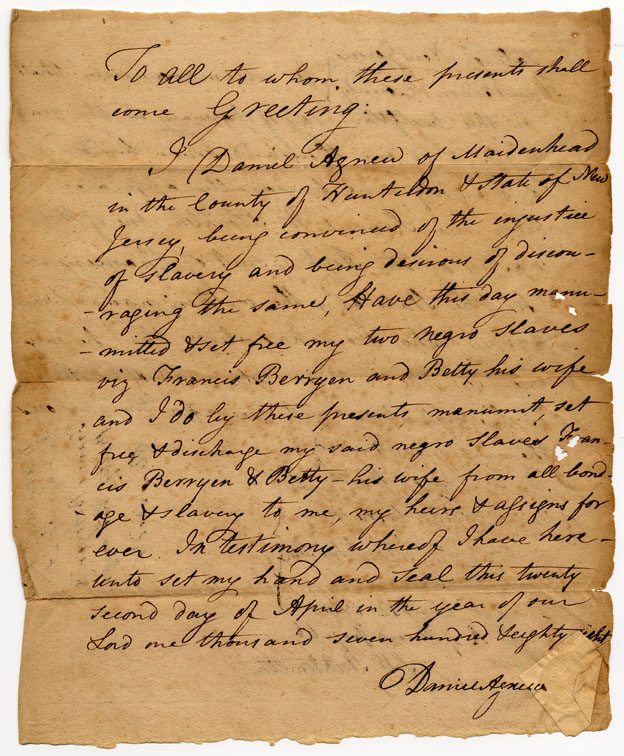 To all to whom these presents shall
come Greeting:
I Daniel Agnew of Maidenhead
in the County of Hunterdon & State of New
Jersey, being convinced of the injustice
of slavery and being desirous of discou-
-raging the same, Have this day manu-
-mitted & set free my two negro slaves
viz Francis Berryen and Betty his wife
and I do by these presents manumit, set
free & discharge my said negro slaves Fran-
cis Berryen & Betty - his wife from all bond-
age & slavery to me, my heirs & assigns for
ever. In testimony whereof I have here-
unto set my hand and seal this twenty
second day of April in the year of our
Lord one thousand seven hundred & eighty eight
Daniel Agnew